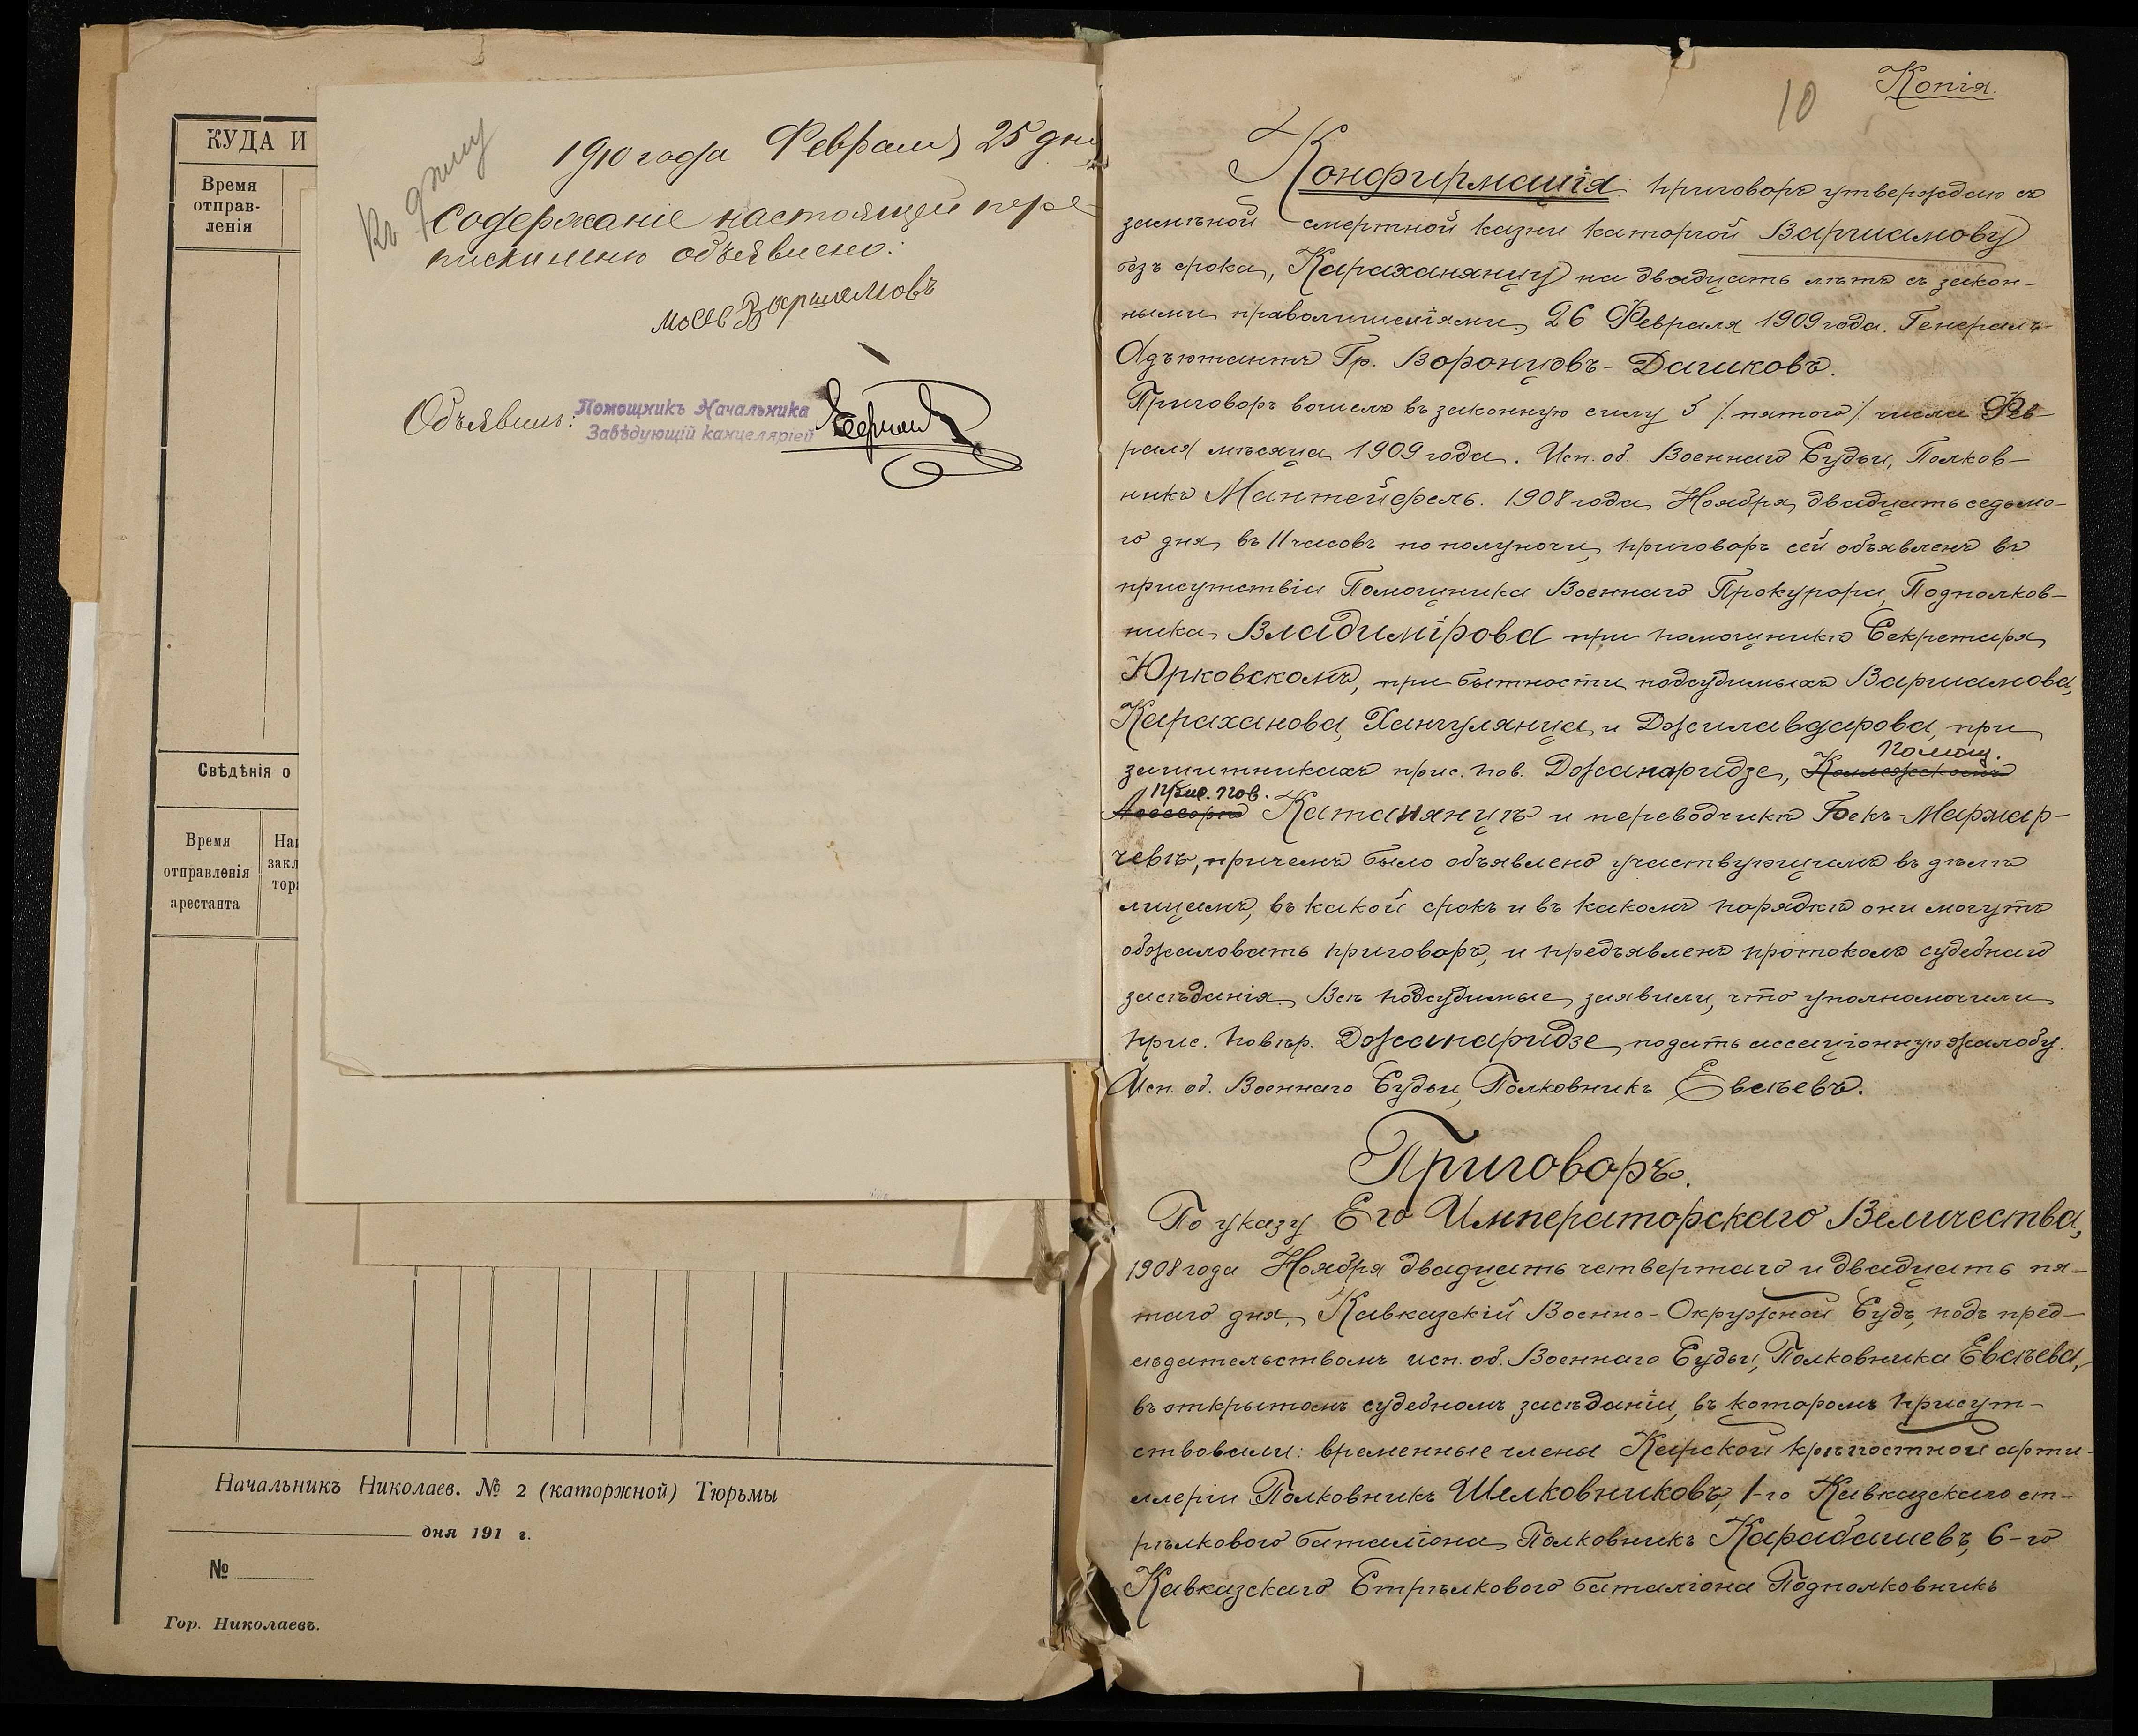 КУДА И
Время
отправ-
ленія
Свѣдѣнія о
Время
отправленія
арестанта
На
закл
тор
Къ дѣлу
1910 года Февраля 25 дня
содержаніе настоящей пере-
писки мню объявлено:
Моеъ Варшамовъ
Объявилъ:
Помощникъ Начальника
Завѣдующій канцеляріей
Начальникъ Николаев. № 2 (каторжной) Тюрьмы
дня 191 г.
№
Гор. Николаевъ.
Копія.
10
Конфирмація: приговоръ утверждаю съ
замѣной смертной казни каторгой Варшамову
безъ срока, Караханянцу на двадцать лѣтъ съ закон-
ными праволишеніями, 26 Февраля 1909 года. Генералъ-
Адъютантъ Гр. Воронцовъ-Дашковъ.
Приговоръ вошелъ въ законную силу 5 /пятого/ числа Фев
раля мѣсяца 1909 года. Исп. об. Военнаго Судьи, Полков-
никъ Мантейфель. 1908 года, Ноября, двадцать седьмо-
го дня, въ 11 часовъ по полуночи, приговоръ сей объявленъ въ
присутствіи Помощника Военнаго Прокурора, Подполков-
ника Владимірова при помощникѣ Секретаря
Юрковскомъ, при бытности подсудимыхъ Варшамова,
Караханова, Ханчулянца и Джилавдарова, при
защитникахъ прис. пов. Джапаридзе, Коллежскомъ Помощ.
прис. пов.
Ассесорѣ Катанянцѣ и переводчикѣ Бекъ-Мармар-
чевѣ, причемъ было объявлено участвующимъ въ дѣлѣ
лицамъ, въ какой срокъ и въ какомъ порядкѣ они могутъ
обжаловать приговоръ, и предъявленъ протоколъ судебнаго
засѣданія. Всѣ подсудимые заявили, что уполномочили
прис. повѣр. Джапаридзе подать кассаціонную жалобу.
Исп. об. Военнаго Судьи, Полковникъ Евсѣевъ.
Приговоръ.
По указу Его Императорскаго Величества,
1908 года Ноября двадцать четвертаго и двадцать пя-
таго дня, Кавказскій Военно-Окружной Судъ, подъ пред-
сѣдательствомъ исп. об. Военнаго Судьи, Полковника Евсѣева,
въ открытомъ судебномъ засѣданіи, въ которомъ присут-
ствовали: временные члены Карской крѣпостной арти-
ллеріи Полковникъ Шелковниковъ, 1-го Кавказскаго ст-
рѣлкового баталіона Полковникъ Карабашевъ, 6-го
Кавказскаго Стрѣлкового баталіона Подполковникъ